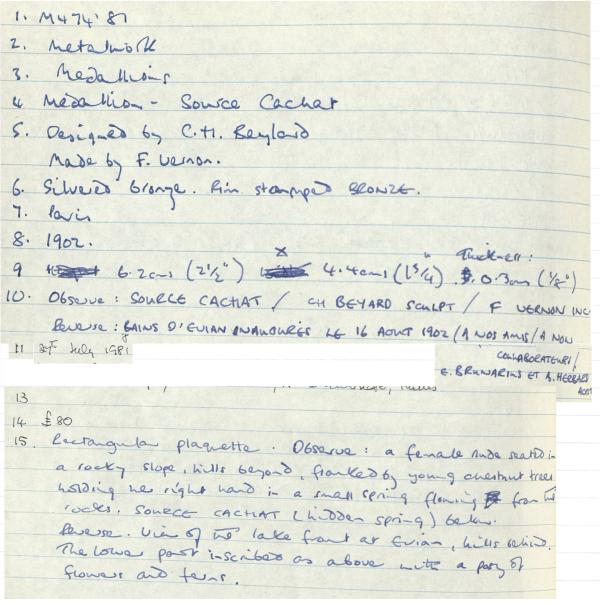 1. M474'81
2. Metalwork
3. Medallions
4. Medallion - Source Cachat
5. Designed by C.H. Beylard
Made by F. Vernon.
6. Silvered bronze. Rim stamped BRONZE.
7. Paris
8. 1902.
Thickness:
9 6.2cms (2½") x 4.4cms (1¾") 0.3cm (⅛")
10. Observe: SOURCE CACHAT / CH BEYARD SCULPT / F VERNON INC
Reverse: BAINS D'EVIAN INAUGURÉS LE 16 AOUT 1902 / A NOS AMIS / A NOU
COLLABORATEURS /
11 July 1981
E. BRUNARIUS ET A. HERBARS
13
14 £80
15. Rectangular plaquette. Observe: a female nude seated in
a rocky slope, hills beyond, flanked by young chestnut trees
holding her right hand in a small spring flowing from the
rocks. SOURCE CACHAT (hidden spring) below.
Reverse. View of the lake front at Evian, hills behind.
The lower part inscribed as above with a posy of
flowers and ferns.